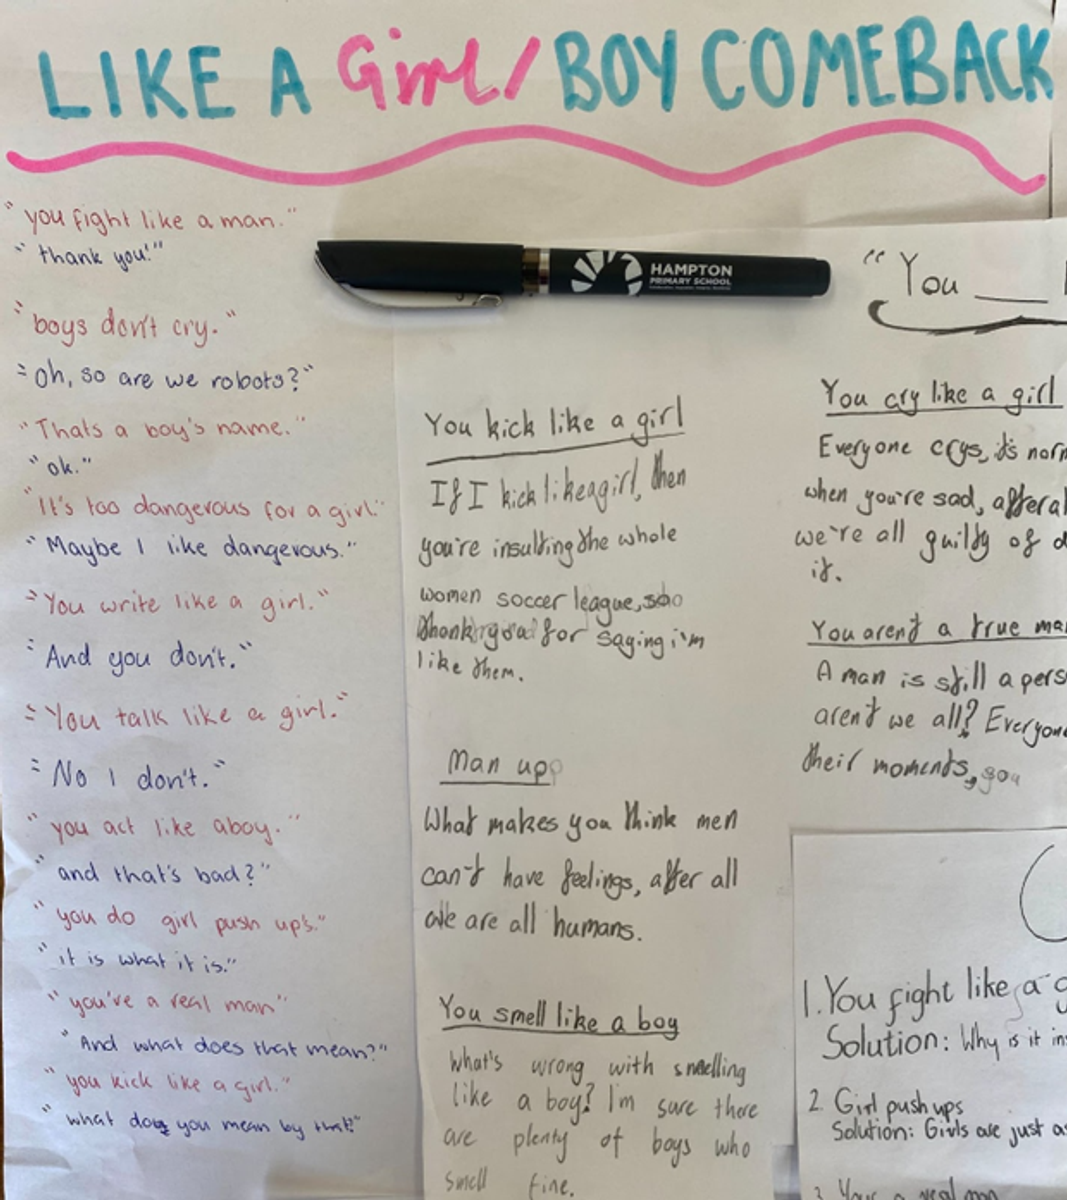 LIKE A Girl/BOY COMEBACK
"you fight like a man."
"thank you!"
"boys don't cry."
"Oh, so are we robots?"
"Thats a boy's name."
"ok."
"It's too dangerous for a girl."
"Maybe I like dangerous."
"You write like a girl."
"And you don't."
"You talk like a girl."
"No I don't."
"you act like aboy."
"and that's bad?"
"you do girl push up's."
"it is what it is."
"you've a real man"
"And what does that mean?"
"you kick like a girl."
"what do you mean by that?"
HAMPTON
PRIMARY SCHOOL
You kick like a girl
If I kick like a girl, then
you're insulting the whole
women soccer league, so
for saying i'm
like them.
Man up
What makes you think men
can't have feelings, after all
we are all humans.
You smell like a boy
What's wrong with smelling
like a boy? I'm sure there
are plenty of boys who
smell fine.
"You ___
You cry like a girl
Everyone crys, it's norm
when you're sad, after al
we're all guilty of d
it.
You aren't a true ma
A man is still a pers
aren't we all? Everyone
their moments, you
1. You fight like a g
Solution: Why is it in
2. Girl push ups
Solution: Girls are just as
3. Your a real man